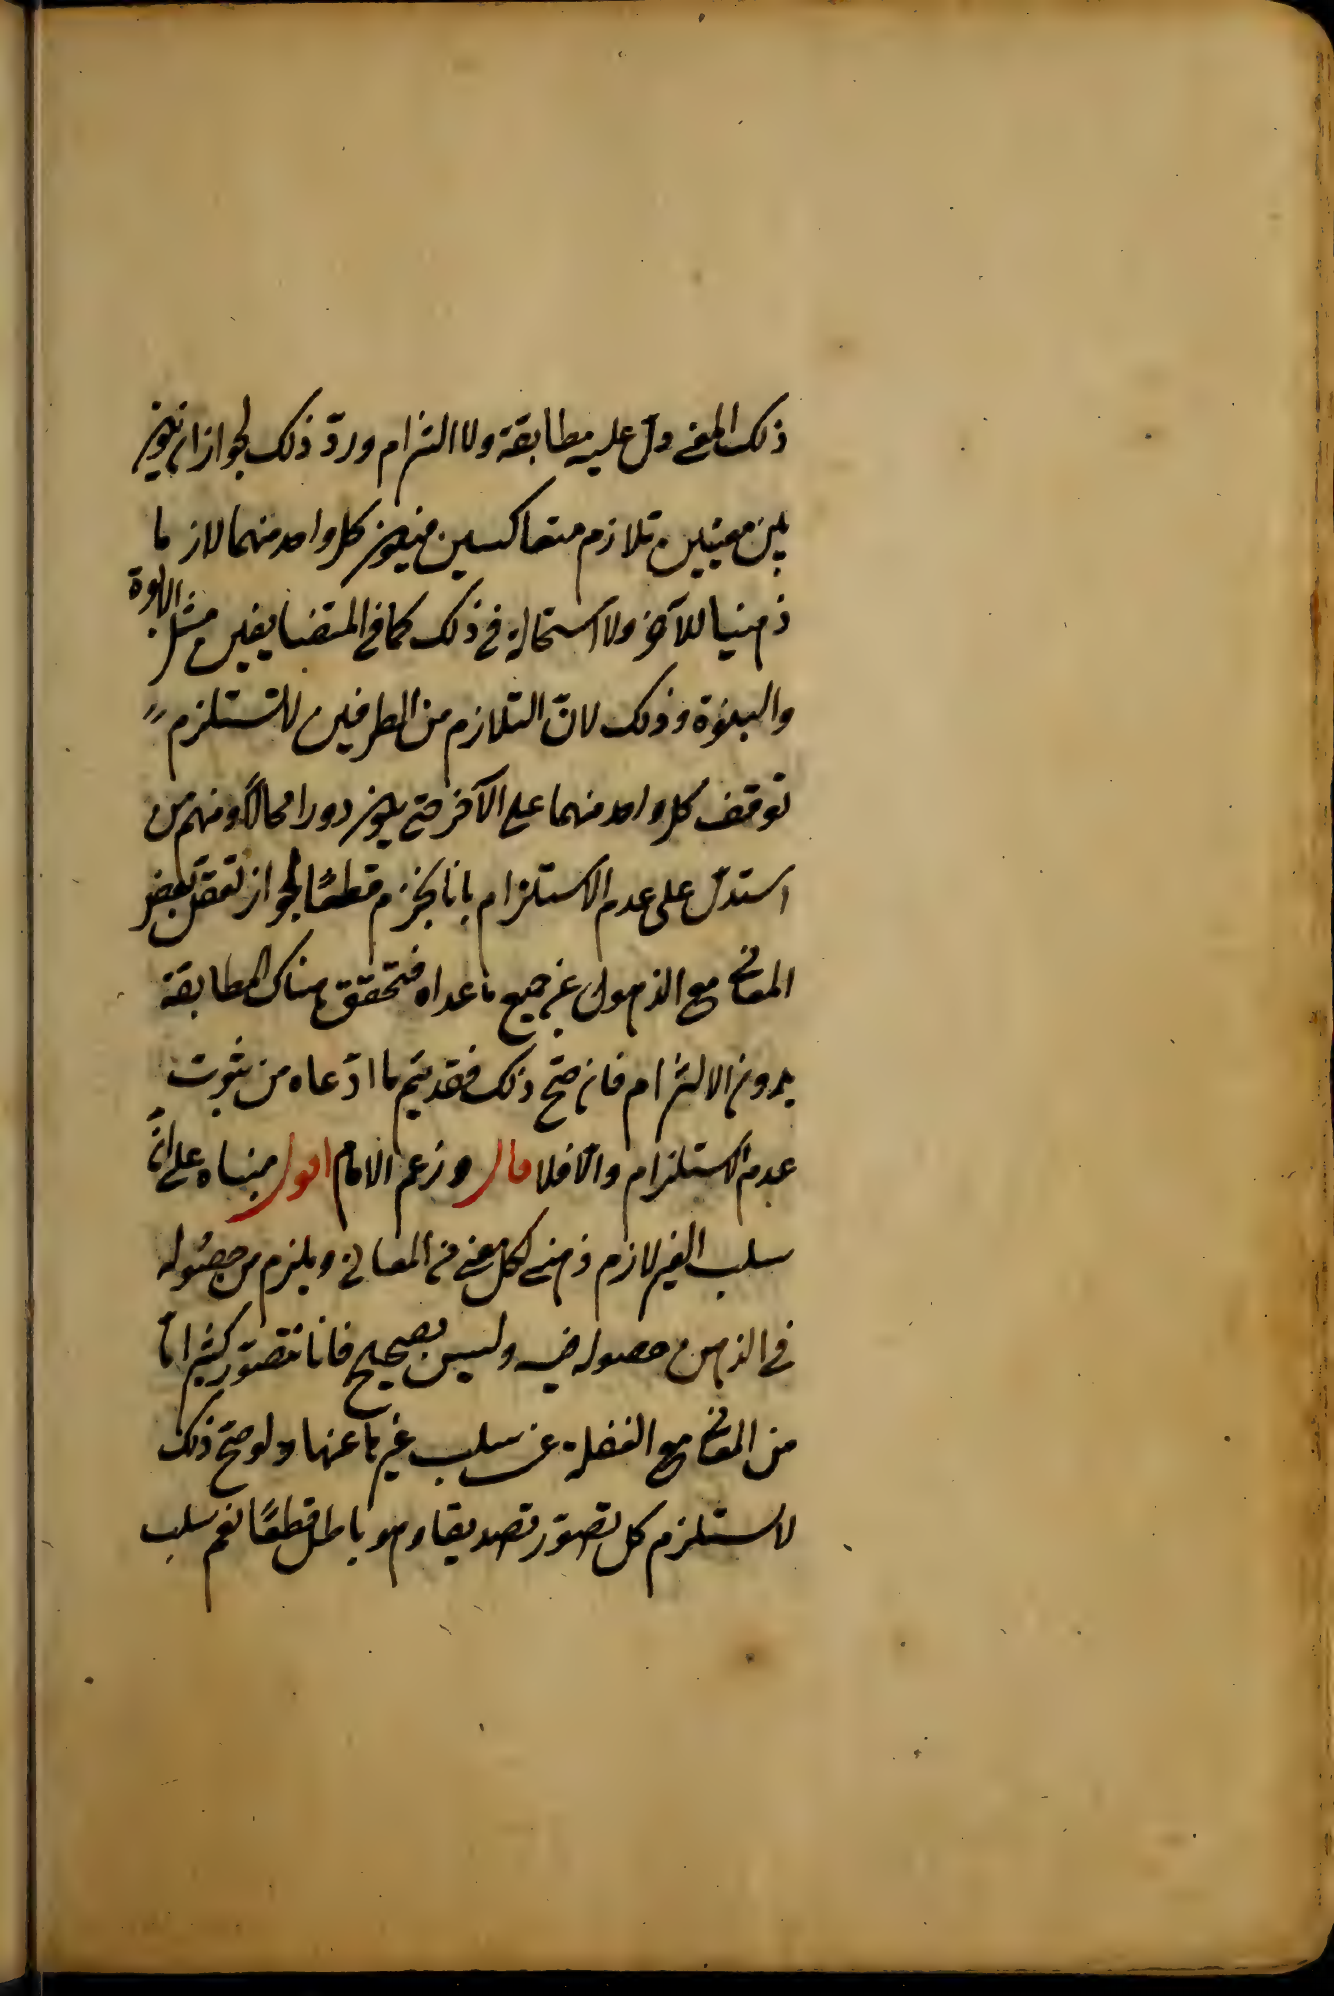 ذلك المعنى دل عليه مطابقة ولا التزام وردّ ذلك لجواز ان يكون
بين معنيين تلازم متعاكسين فيكون كل واحد منهما لازما
ذهنيا للآخر ولا استحالة في ذلك كما في المتضايفين مثل الابوة
والبنوّة وذلك لانّ التلازم من الطرفين لا تستلزم
توقف كل واحد منهما على الآخر حتى يكون دورا محالاً ومنهم من
استدلّ على عدم الاستلزام بانا نجزم قطعًا لجواز تعقل بعض
المعاني مع الذهول عن جميع ما عداه فتحقق هناك المطابقة
بدون الالتزام فان صحّ ذلك فقد يتم ما ادّعاه من ثبوت
عدم الاستلزام والّا فلا قال وزعم الامام اقول مبناه على انّ
سلب الغير لازم ذهني لكل معنى من المعاني ويلزم من حصُوله
في الذهن حصوله فيه وليس بصحيح فانا نتصوّر كثيرا مّا
من المعاني مع الغفلة عن سلب غيرها عنها ولو صحّ ذلك
لاستلزم كل تصوّر تصديقا وهو باطل قطعًا نعم سلب